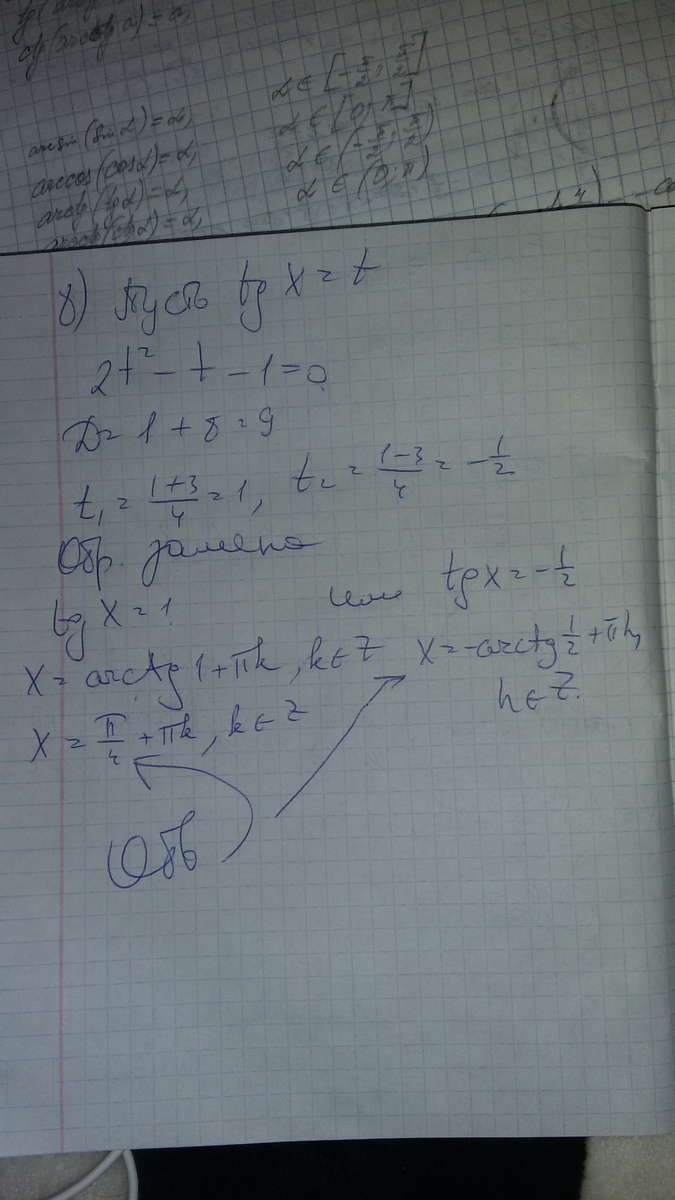 arcsin(sin α) = α, α ∈ [-π/2; π/2]
arccos(cos α) = α, α ∈ [0; π]
arctg(tg α) = α, α ∈ (-π/2; π/2)
arcctg(ctg α) = α, α ∈ (0; π)
8) Пусть tg x = t
2t² - t - 1 = 0
D = 1 + 8 = 9
t₁ = (1+3)/4 = 1, t₂ = (1-3)/4 = -1/2
Обр. замена
tg x = 1 или tg x = -1/2
x = arctg 1 + πk, k ∈ Z x = -arctg 1/2 + πn,
n ∈ Z.
x = π/4 + πk, k ∈ Z
Отв